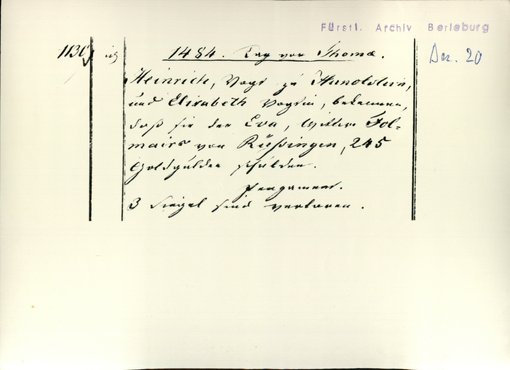 Fürstl. Archiv Berleburg
1484. Tag vor Thomæ.
Dez. 20
Heinrich, Vogt zu Hunolstein,
und Elisabeth Vogtin, bekennen,
daß sie der Eva, Wittwe Fol-
mairs von Rüßingen, 245
Goldgulden schulden.
Pergament.
3 Siegel sind verloren.